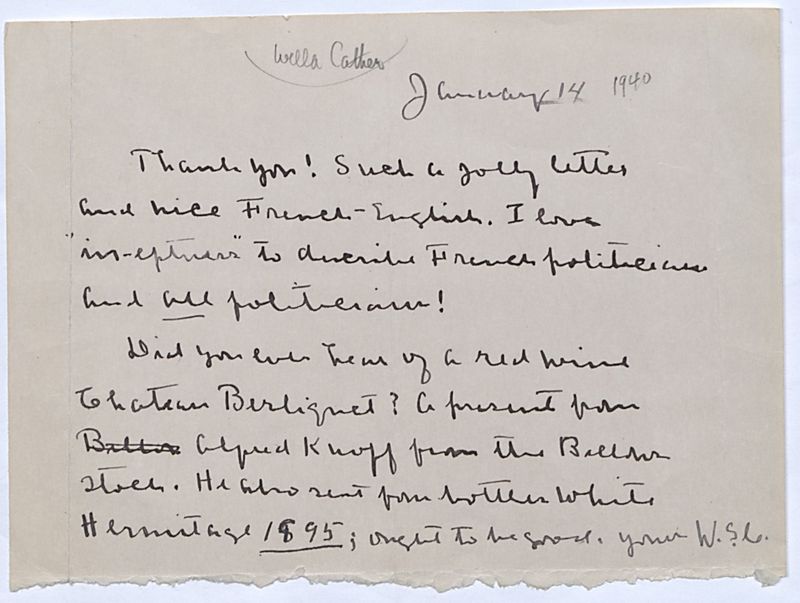 Willa Cather
January 14 1940
Thank you! Such a jolly letter
and nice French-English. I love
"in-eptness" to describe French politicians
and all politicians!
Did you ever hear of a red wine
Chateau Berliquet? A present from
Bellow Alfred Knopf from the Bellows
stock. He also sent four bottles White
Hermitage 1895; ought to be good. yours W.S.C.